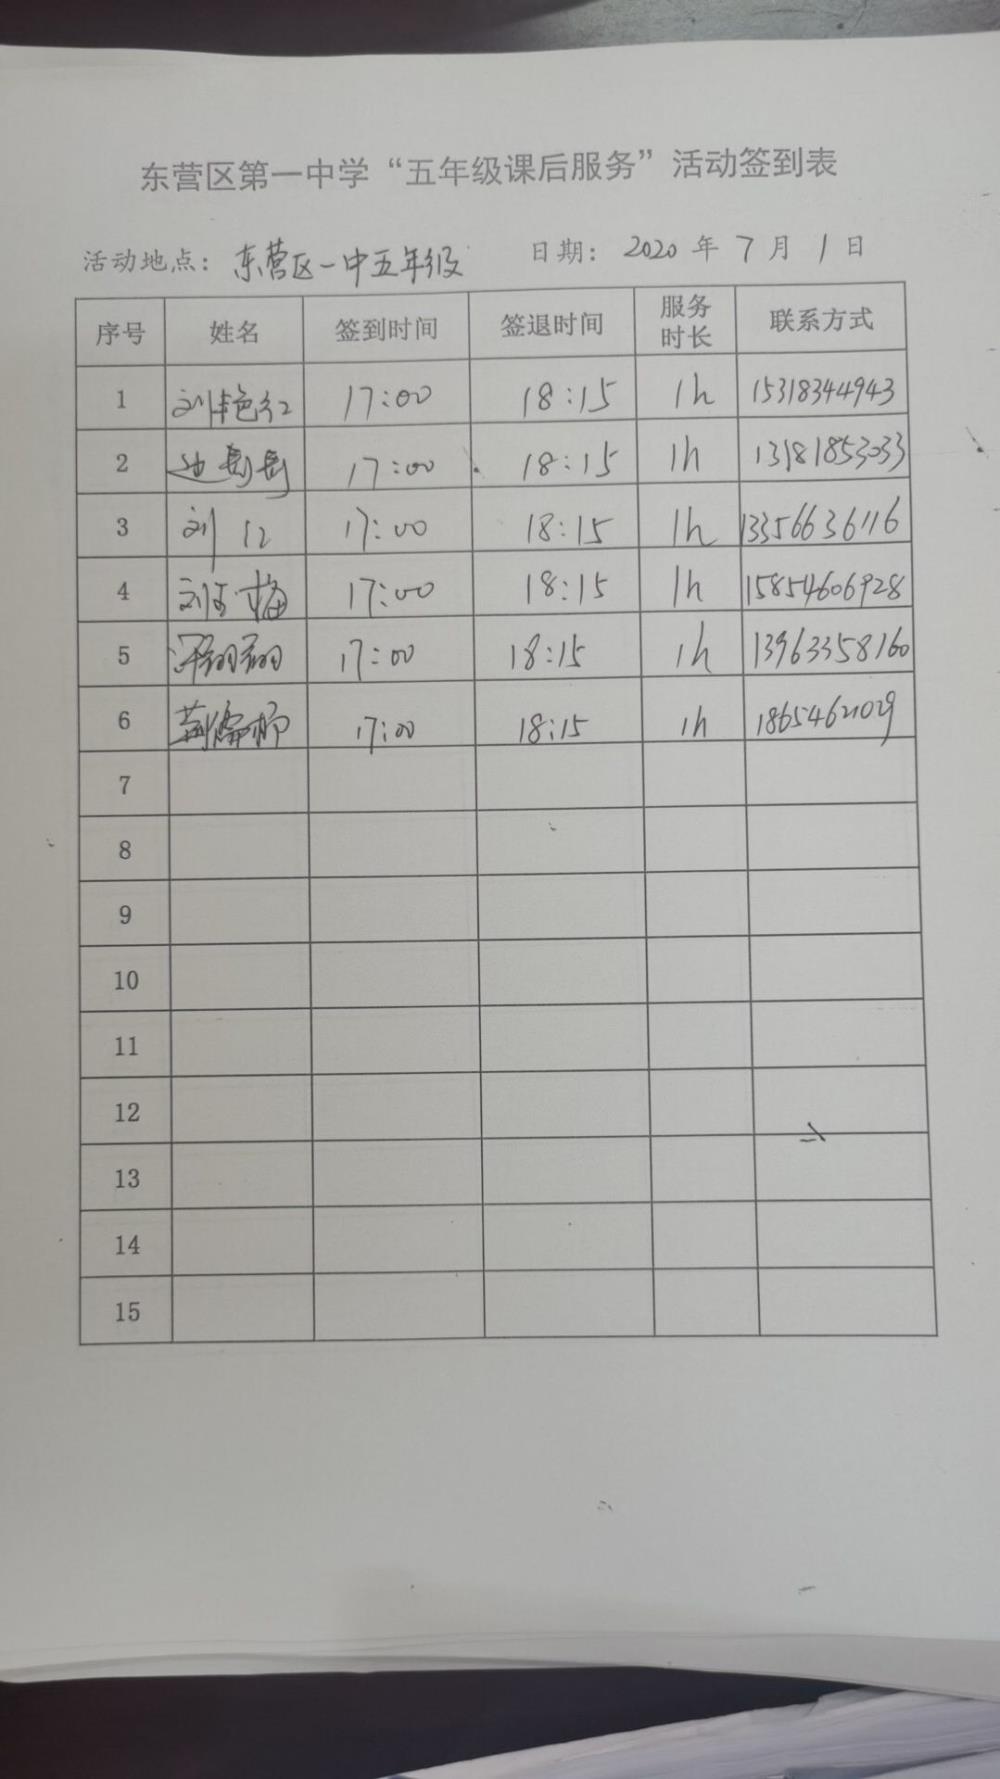 东营区第一中学“五年级课后服务”活动签到表
活动地点：东营区一中五年级 日期：2020年7月1日
序号 姓名 签到时间 签退时间 服务时长 联系方式
1 刘艳红 17:00 18:15 1h 15318344943
2 边岳岳 17:00 18:15 1h 13181853033
3 刘红 17:00 18:15 1h 13356636116
4 刘 梅 17:00 18:15 1h 15854606928
5 17:00 18:15 1h 13963358160
6 17:00 18:15 1h 18654621029
7
8
9
10
11
12
13
14
15